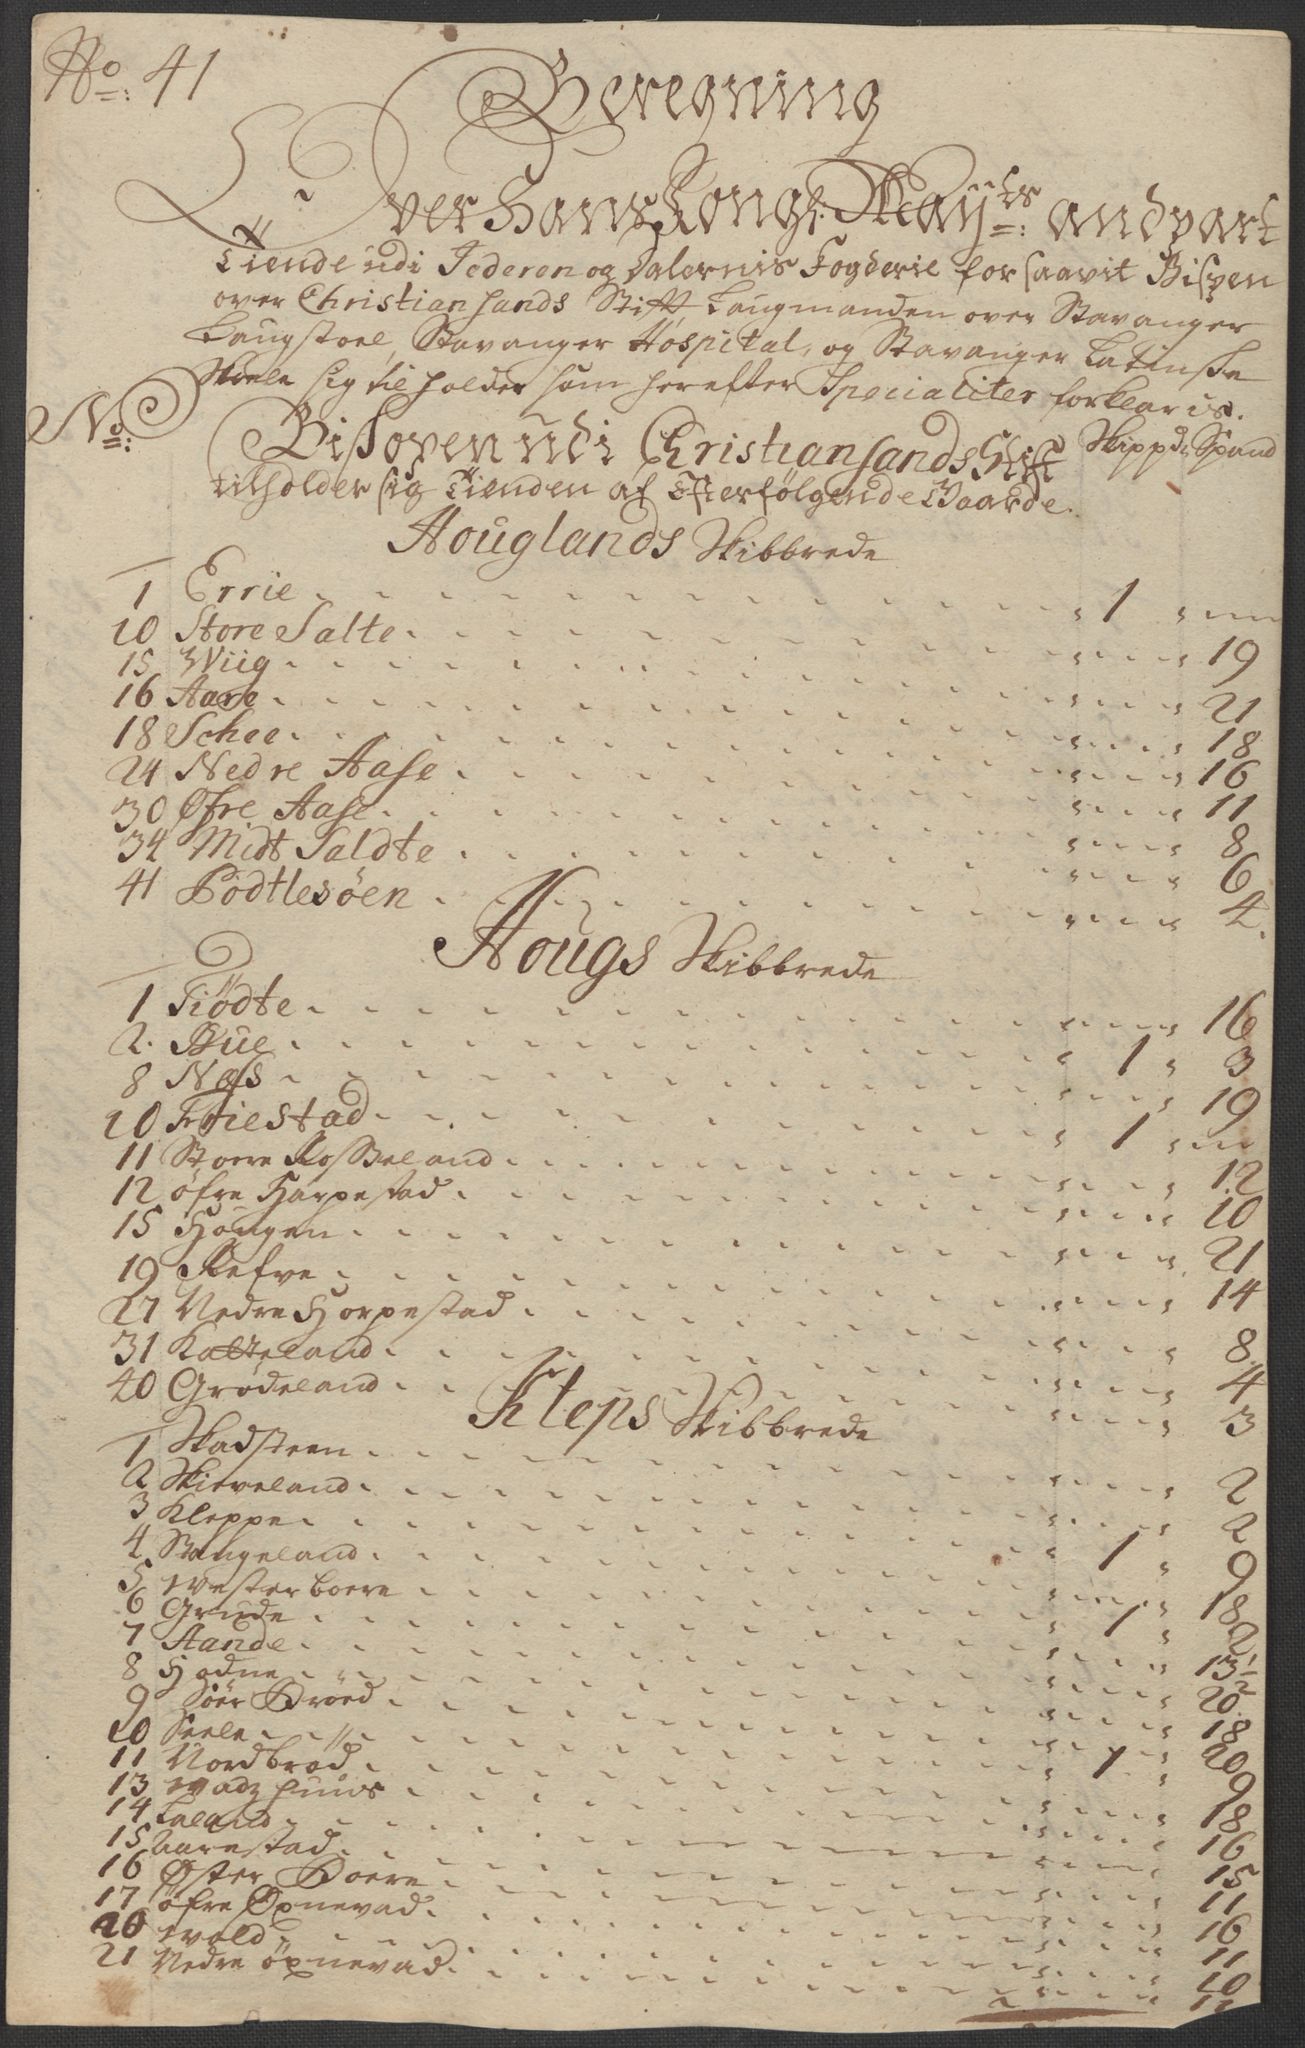 No: 41
Beregning
Over Hans Kongl: Mayts: andpart
Tiende udi Jederen og Dalernis Fogderie for saavit Bispen
over Christiansands Stift Laugmanden over Stavanger
Laugstoel, Stavanger Hospital, og Stavanger Latinske
Skoele sig til holder som herefter Specialiter forklaris.
No: Bispen udi Christiansands Stift Skippd: Spand
tilholder sig Tienden af Efterfølgende Gaarde.
Houglands Skibbrede
1 Errie 1 "
10 Store Salte 19
15 Wiig 21
16 Aare 18
18 Schee 16
24 Nedre Aase 11
30 Øfre Aase 8
34 Midt Saldte 6
41 Podtlesøen 4.
Hougs Skibbrede
1 Tiødte 16
2. Bue 1 3
8 Næs 19
10 Friestad 1 "
11 Stoere Rosseland 12
12 øfre Harpestad 10
15 Hougen 21
19 Refve 14
27 Nedre Horpestad 8
31 Katteland 4
40 Grødeland 3
Kleps Skibbrede
1 Skadsteen 2
2 Skieveland 2
3 Kleppe 1 9
4 Stangeland 18
5 westerboere 1 2
6 Grude 13 1/2
7 Aande 20
8 Hodne 18
9 Søer Brøed 20
10 Seele 1 9
11 Nordbrød 18
13 wadzhuus 16
14 Laland 15
15 Aarestad 11
16 Øster Boere 16
17 øfre Øxnevad 11
20 wold 10
21 Nedre øxnevad